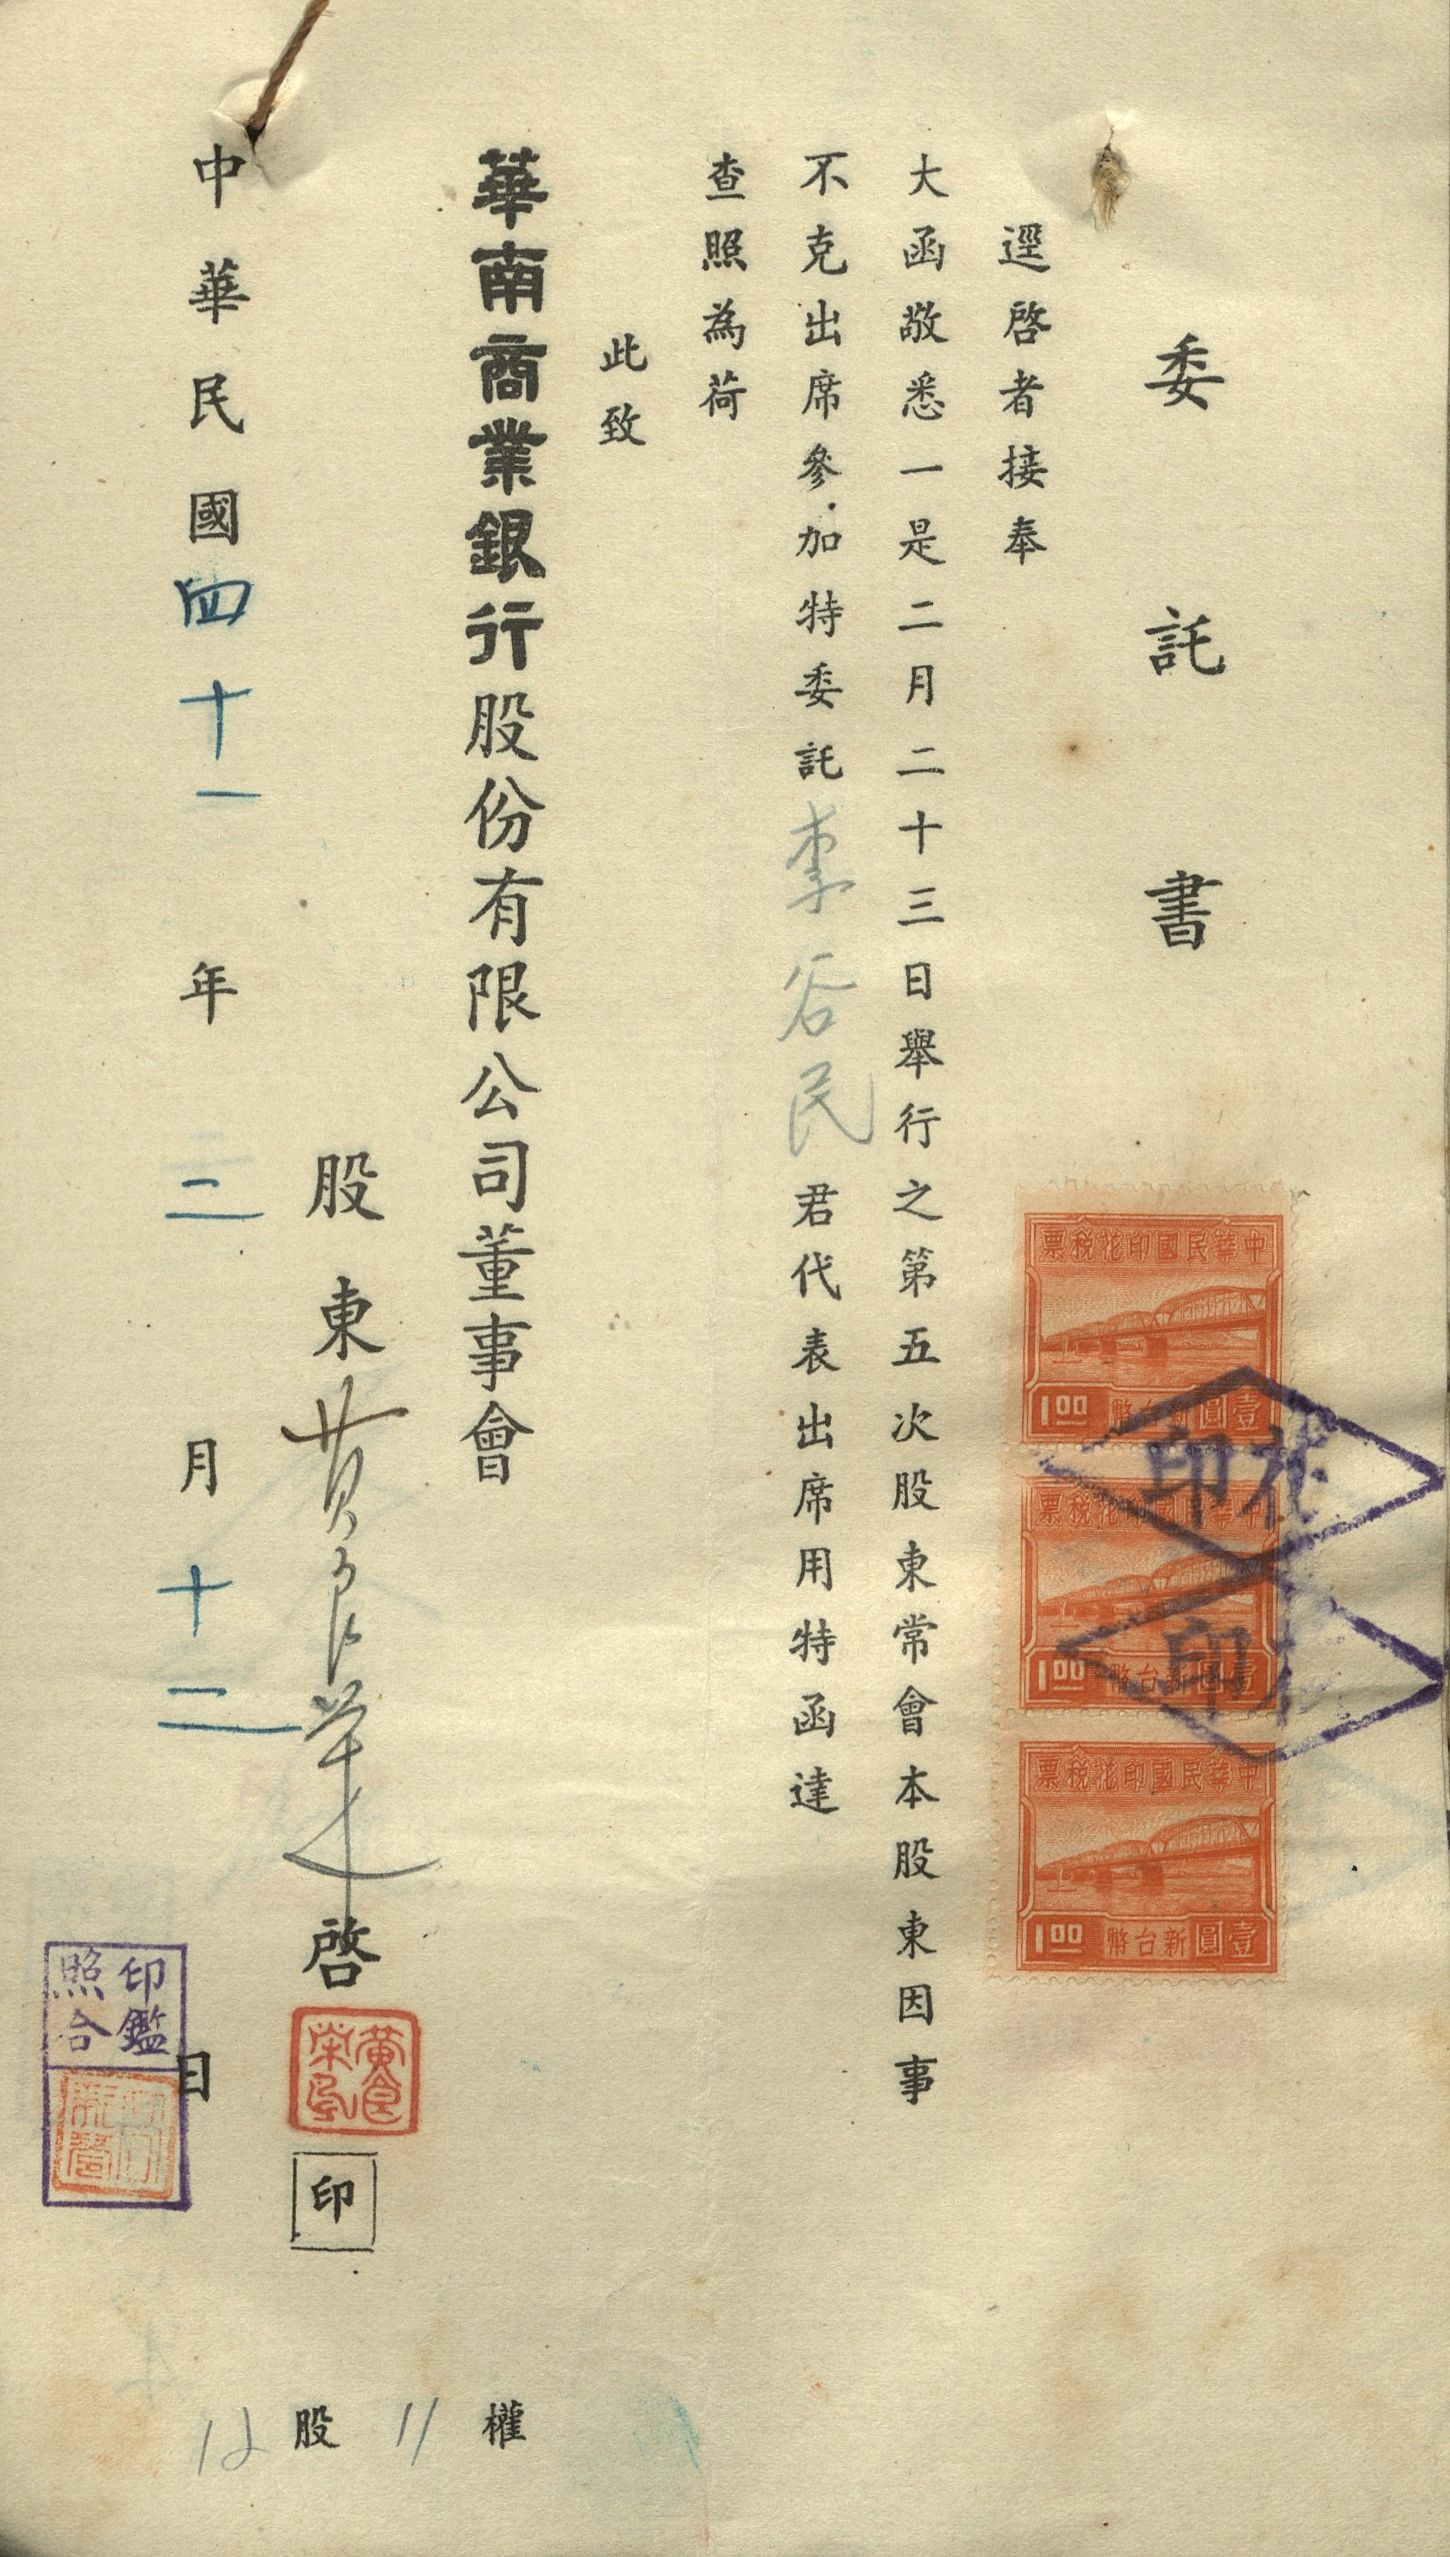 委託書
逕啓者接奉
大函敬悉一是二月二十三日舉行之第五次股東常會本股東因事
不克出席參加特委託李谷民君代表出席用特函達
查照為荷
此致
華南商業銀行股份有限公司董事會
股東黃良華啓
黃良
印
中華民國四十一年二月十二日
印鑑
照合
權
11
股
12
中華民國印花稅票
壹圓新台幣 1.00
中華民國印花稅票
壹圓新台幣 1.00
中華民國印花稅票
壹圓新台幣 1.00
花印
印